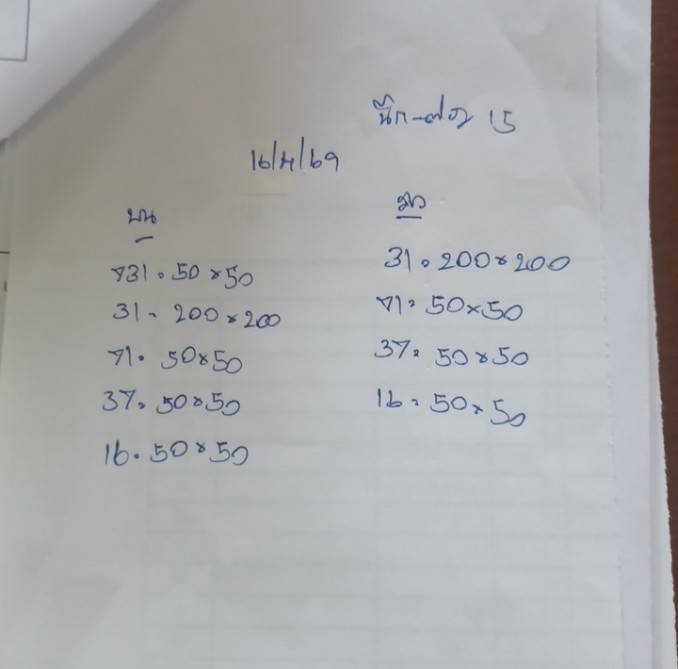 15
16/4/69
บน
731 = 50 × 50
31 = 200 × 200
71 = 50 × 50
37 = 50 × 50
16 = 50 × 50
ล่าง
31 = 200 × 200
71 = 50 × 50
37 = 50 × 50
16 = 50 × 50